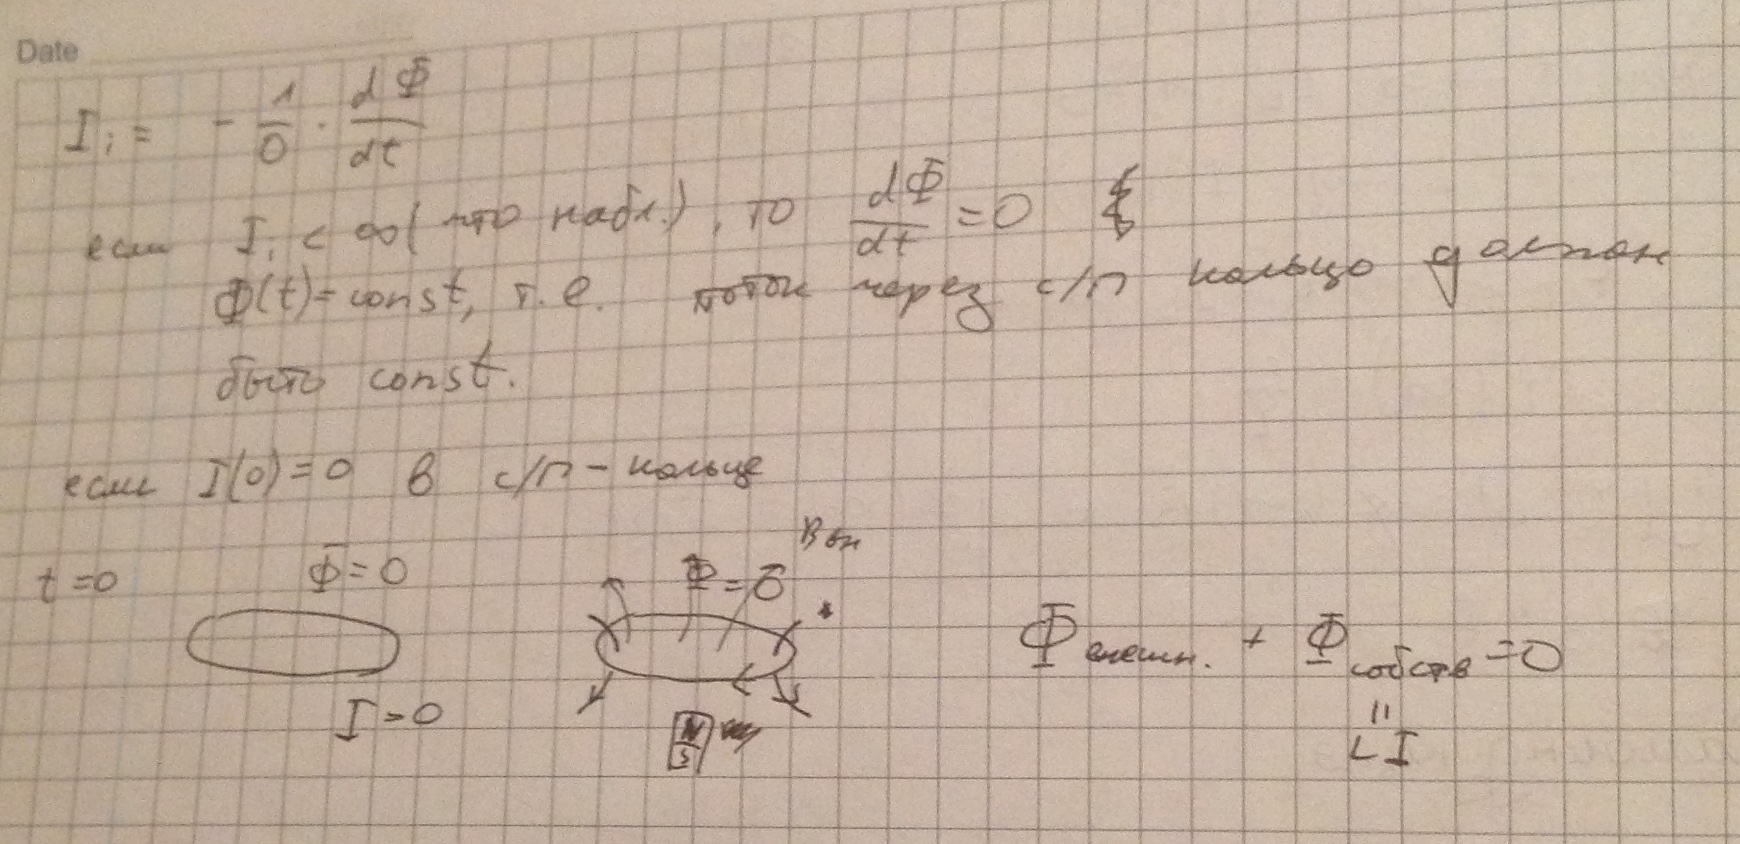 Date
I i = - 1/0 · dΦ/dt
если I i < ∞ (что набл.), то dΦ/dt = 0
Φ(t) = const, т.е. поток через с/п кольцо должен
быть const.
если I(0) = 0 в с/п - кольце
t = 0 Φ = 0 Φ = 0 B вн
Φ внешн. + Φ собств = 0
I = 0 N S = L I